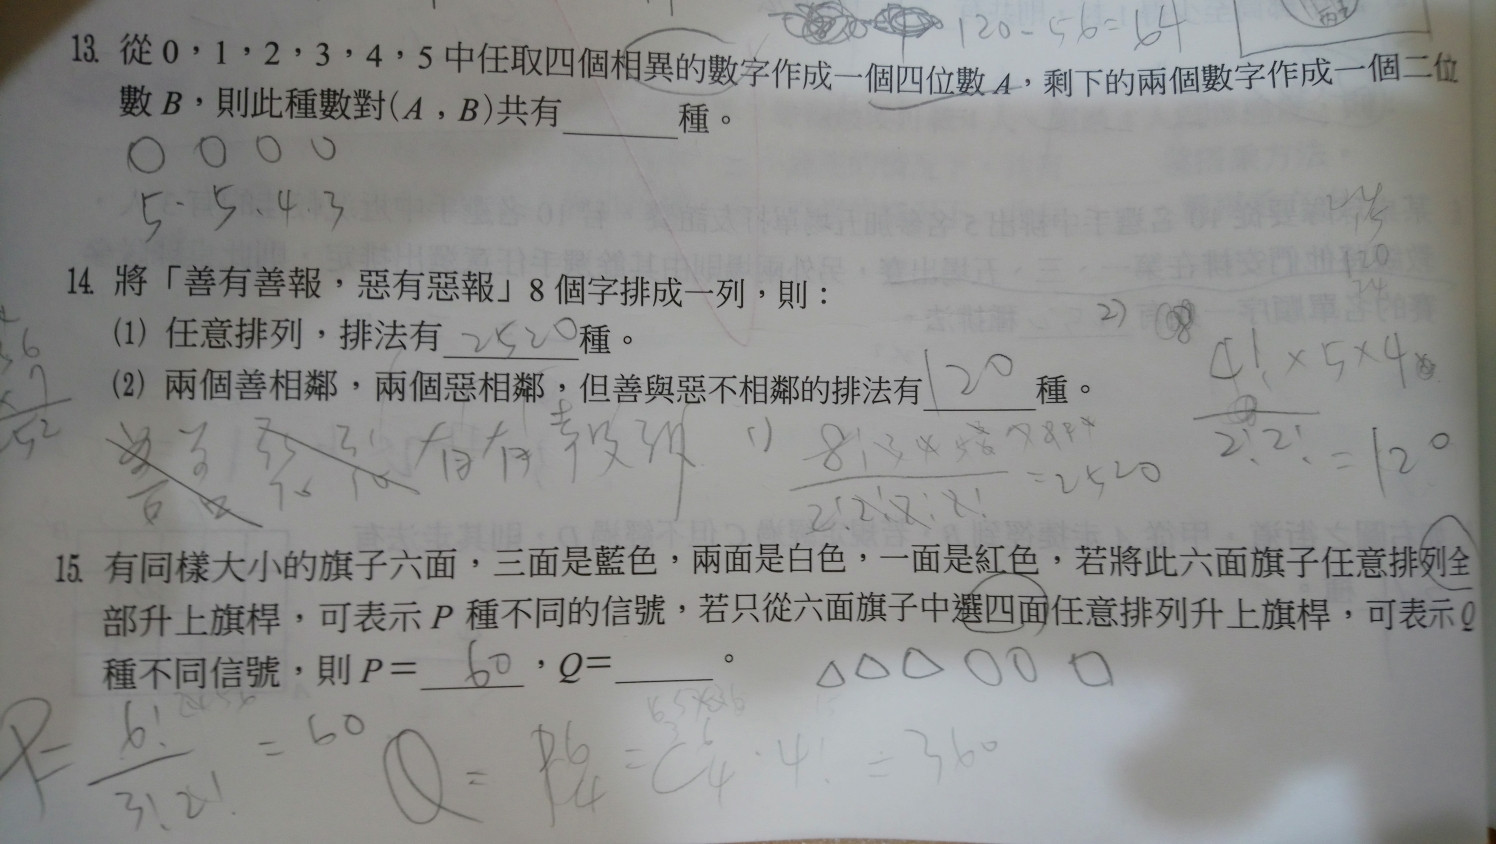 120-56=64
13. 從 0,1,2,3,4,5 中任取四個相異的數字作成一個四位數 A,剩下的兩個數字作成一個二位
數 B,則此種數對(A,B)共有______種。
5·5·4·3
14. 將「善有善報,惡有惡報」8 個字排成一列,則:
(1) 任意排列,排法有 2520 種。
(2) 兩個善相鄰,兩個惡相鄰,但善與惡不相鄰的排法有 120 種。
2)
4!×5×4
2!2!
=120
1)
8!
2!2!2!2!
=2520
有有報報
15. 有同樣大小的旗子六面,三面是藍色,兩面是白色,一面是紅色,若將此六面旗子任意排列全
部升上旗桿,可表示 P 種不同的信號,若只從六面旗子中選四面任意排列升上旗桿,可表示 Q
種不同信號,則 P= 60 ,Q=______。
P= 6! = 60
3!2!
Q = P64 = C64·4! = 360